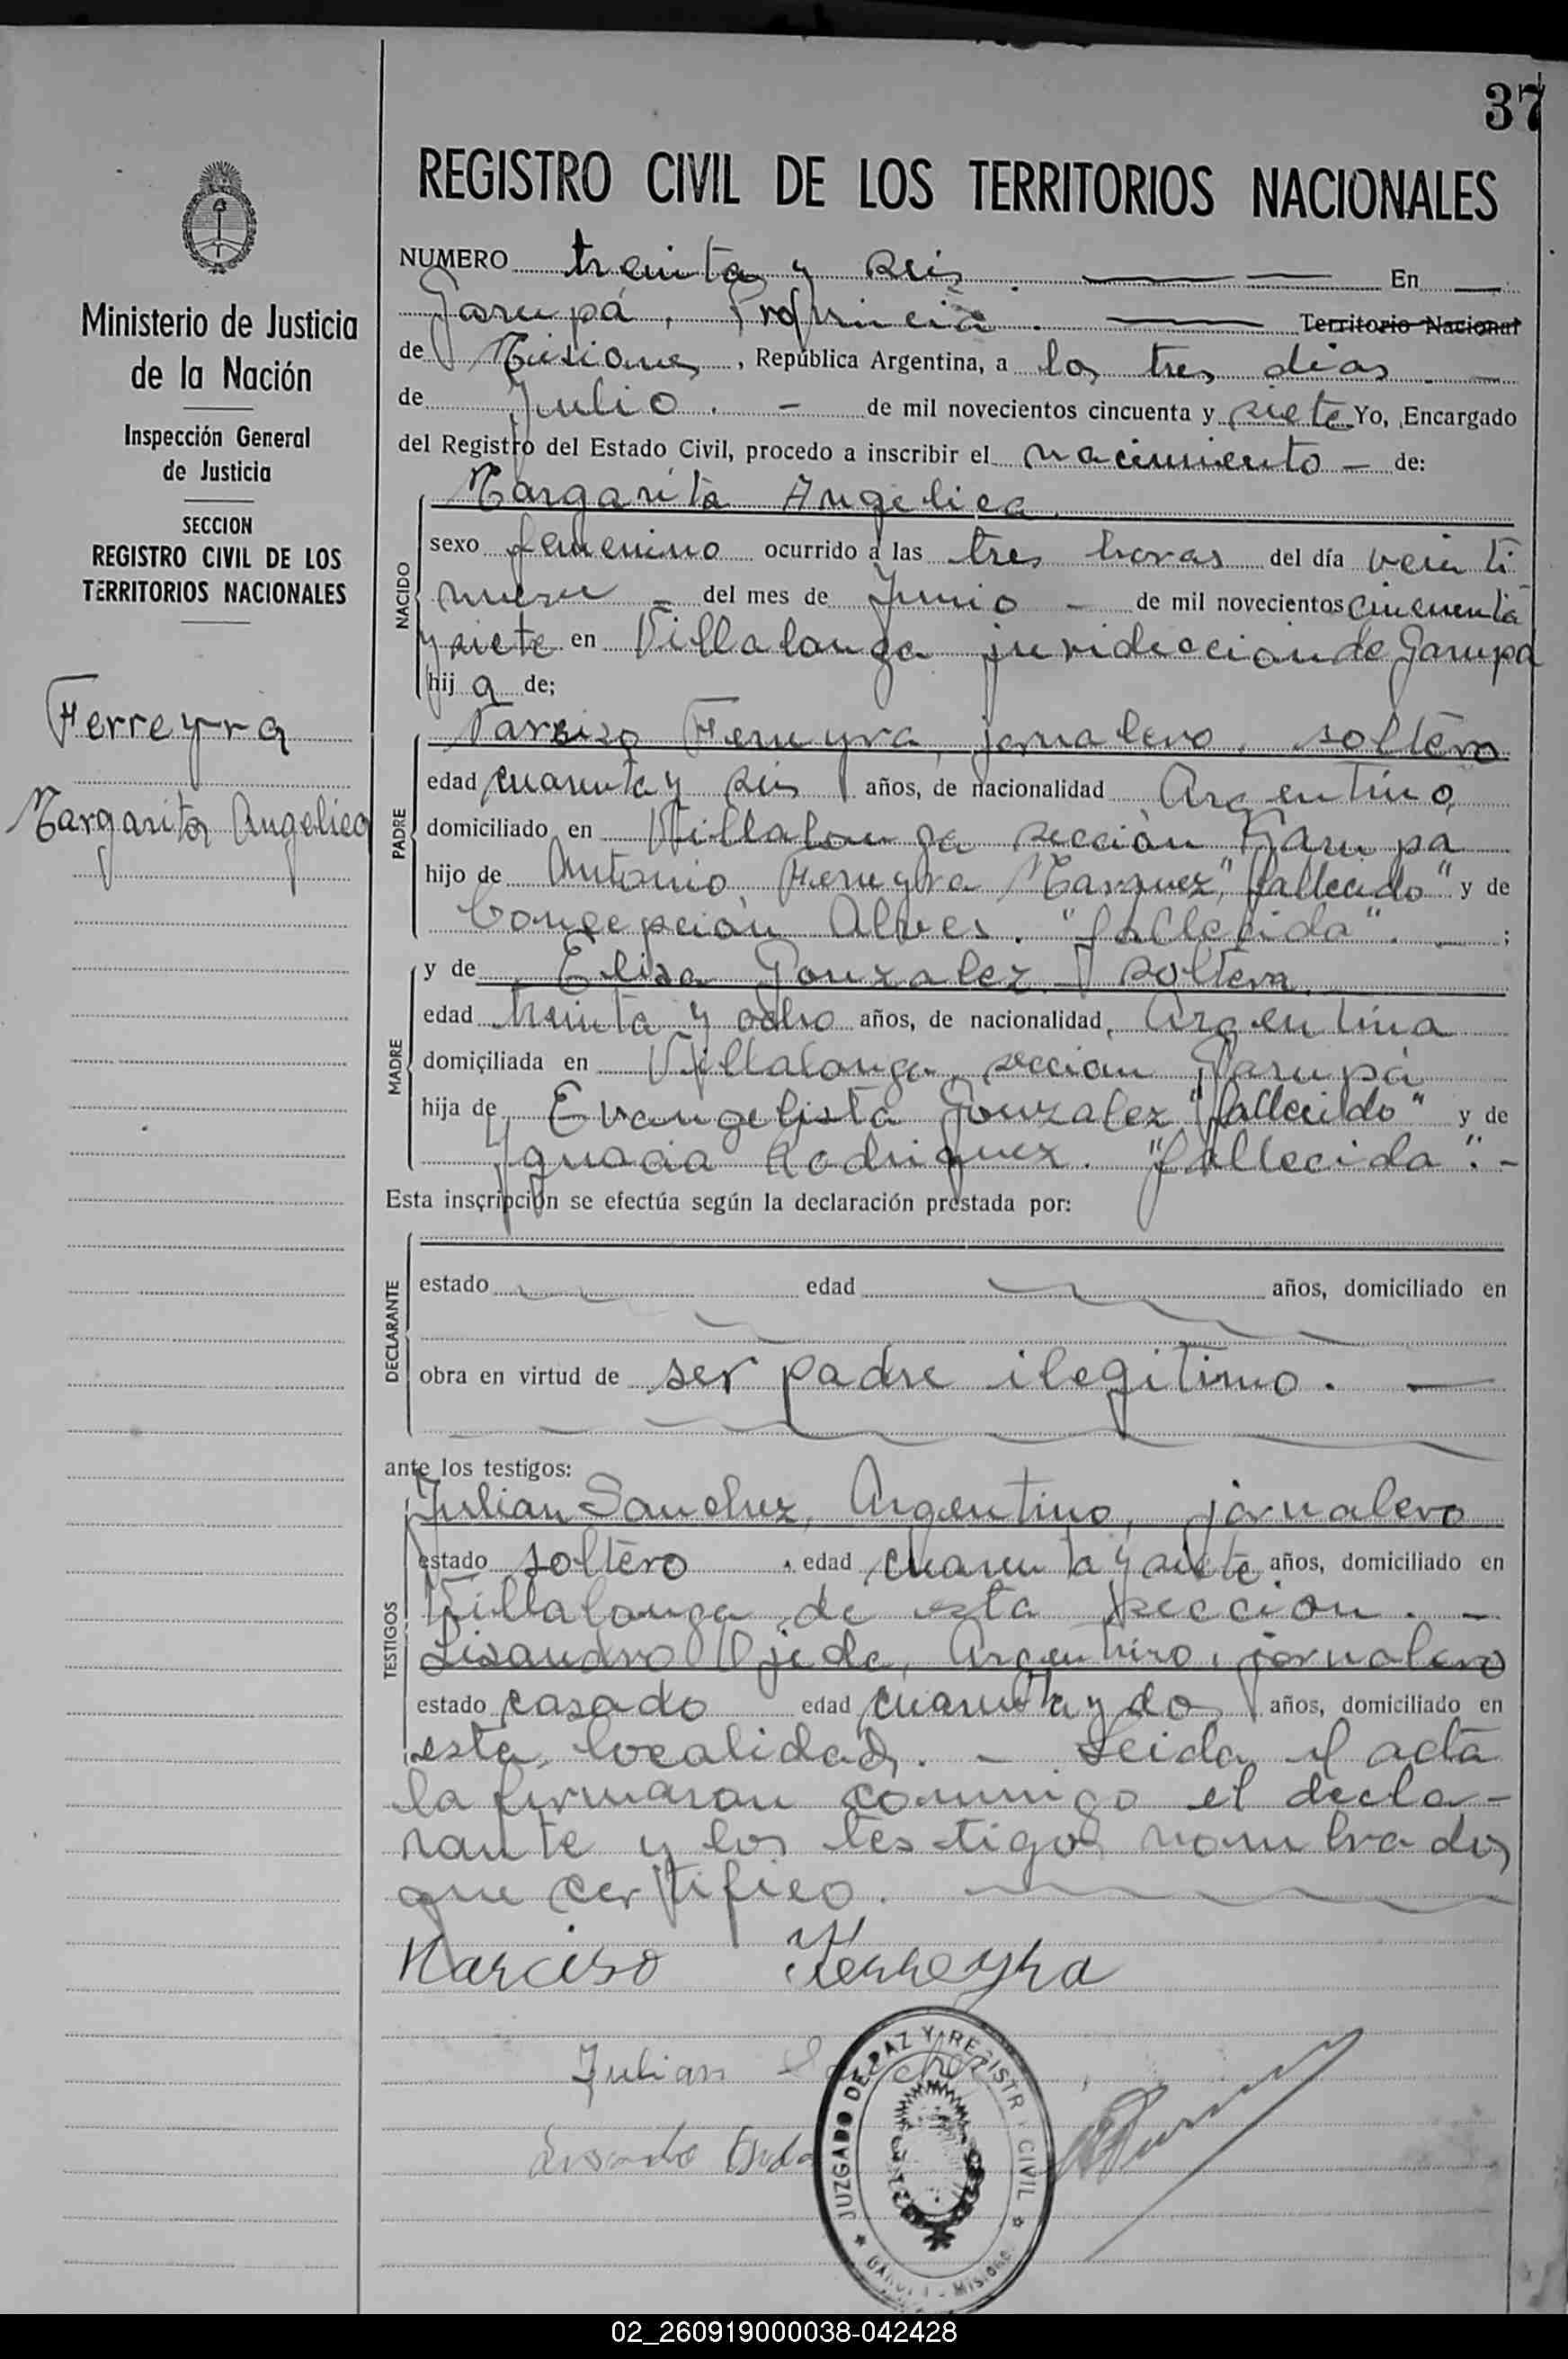 37
REGISTRO CIVIL DE LOS TERRITORIOS NACIONALES
Ministerio de Justicia
de la Nación
Inspección General
de Justicia
SECCION
REGISTRO CIVIL DE LOS
TERRITORIOS NACIONALES
Ferreyra
Margarita Angelica
NUMERO treinta y seis. En
Garupá, Provincia. Territorio Nacional
de Misiones, República Argentina, a los tres dias
de Julio. - de mil novecientos cincuenta y siete Yo, Encargado
del Registro del Estado Civil, procedo a inscribir el nacimiento - de:
NACIDO
Margarita Angelica
sexo femenino ocurrido a las tres horas del día veinti
nueve - del mes de Junio - de mil novecientos cincuenta
y siete en Villalonga juridiccion de Garupá
hij a de;
PADRE
Narciso Ferreyra, jornalero, soltero
edad cuarenta y seis años, de nacionalidad Argentino
domiciliado en Villalonga sección Garupá
hijo de Antonio Ferreyra Marquez, "fallecido" y de
Concepción Alves. "fallecida". - ;
MADRE
y de Elisa Gonzalez soltera
edad treinta y ocho años, de nacionalidad Argentina
domiciliada en Villalonga, seccion Garupá
hija de Evangelista Gonzalez "fallecido" y de
Ygnacia Rodriguez. "fallecida". -
Esta inscripción se efectúa según la declaración prestada por:
DECLARANTE
estado edad años, domiciliado en
obra en virtud de ser padre ilegitimo. -
ante los testigos:
TESTIGOS
Julian Sanchez, Argentino, jornalero
estado soltero . edad cuarenta y siete años, domiciliado en
Villalonga de esta seccion. -
Lisandro Ojeda, Argentino, jornalero
estado casado edad cuarenta y dos años, domiciliado en
esta localidad. - Leida el acta
la firmaron conmigo el decla-
rante y los testigos nombrados
que certifico.
Narciso Ferreyra
Julian Sanchez
JUZGADO DE PAZ Y REGISTR CIVIL
02_260919000038-042428